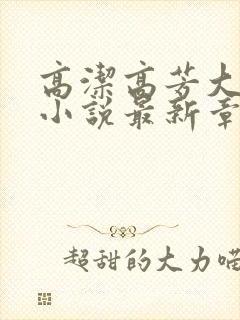 高潔高芳大
小說最新章
超甜的大力喵